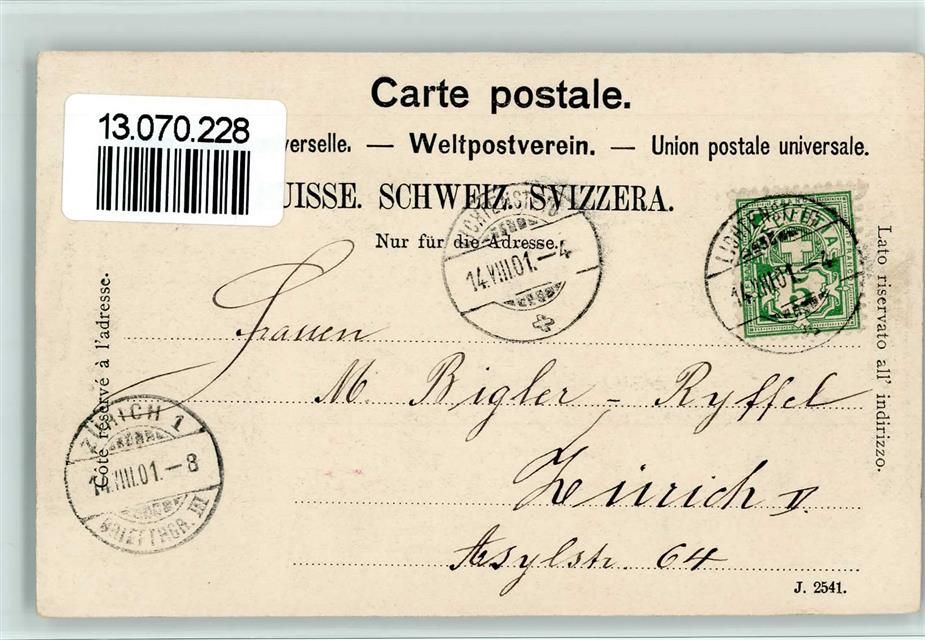 Carte postale.
13.070.228
verselle. — Weltpostverein. — Union postale universale.
UISSE. SCHWEIZ. SVIZZERA.
Nur für die Adresse.
LICHTENSTEIG
14.VIII.01.–4
14.VIII.01.–4
5
Côté réservé à l'adresse.
Lato riservato all' indirizzo.
Frauen
M. Bigler – Ryffel
Zürich V.
Asylstr. 64
ZÜRICH 1
14.VIII.01.–8
BRIEFTRGR. III
J. 2541.